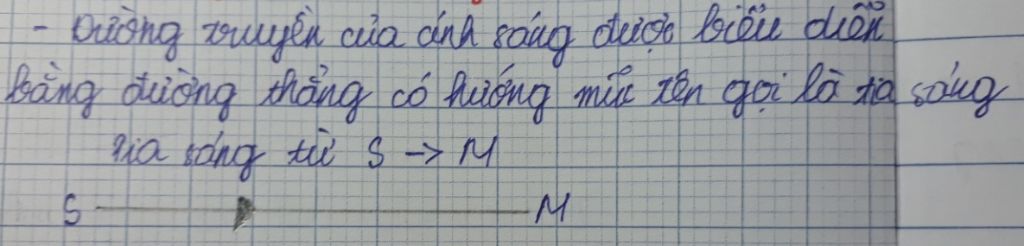 - Đường truyền của ánh sáng được biểu diễn
bằng đường thẳng có hướng mũi tên gọi là tia sáng
Tia sáng từ S → M
S M